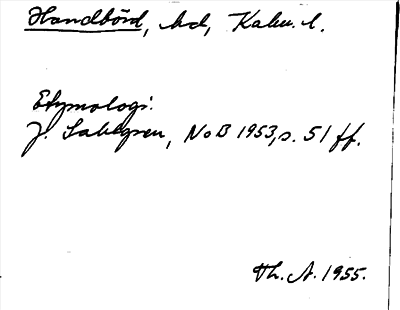 Handbörd, hd, Kalm. l.
Etymologi:
J. Sahlgren, NoB 1953, s. 51 ff.
Th. A. 1955.